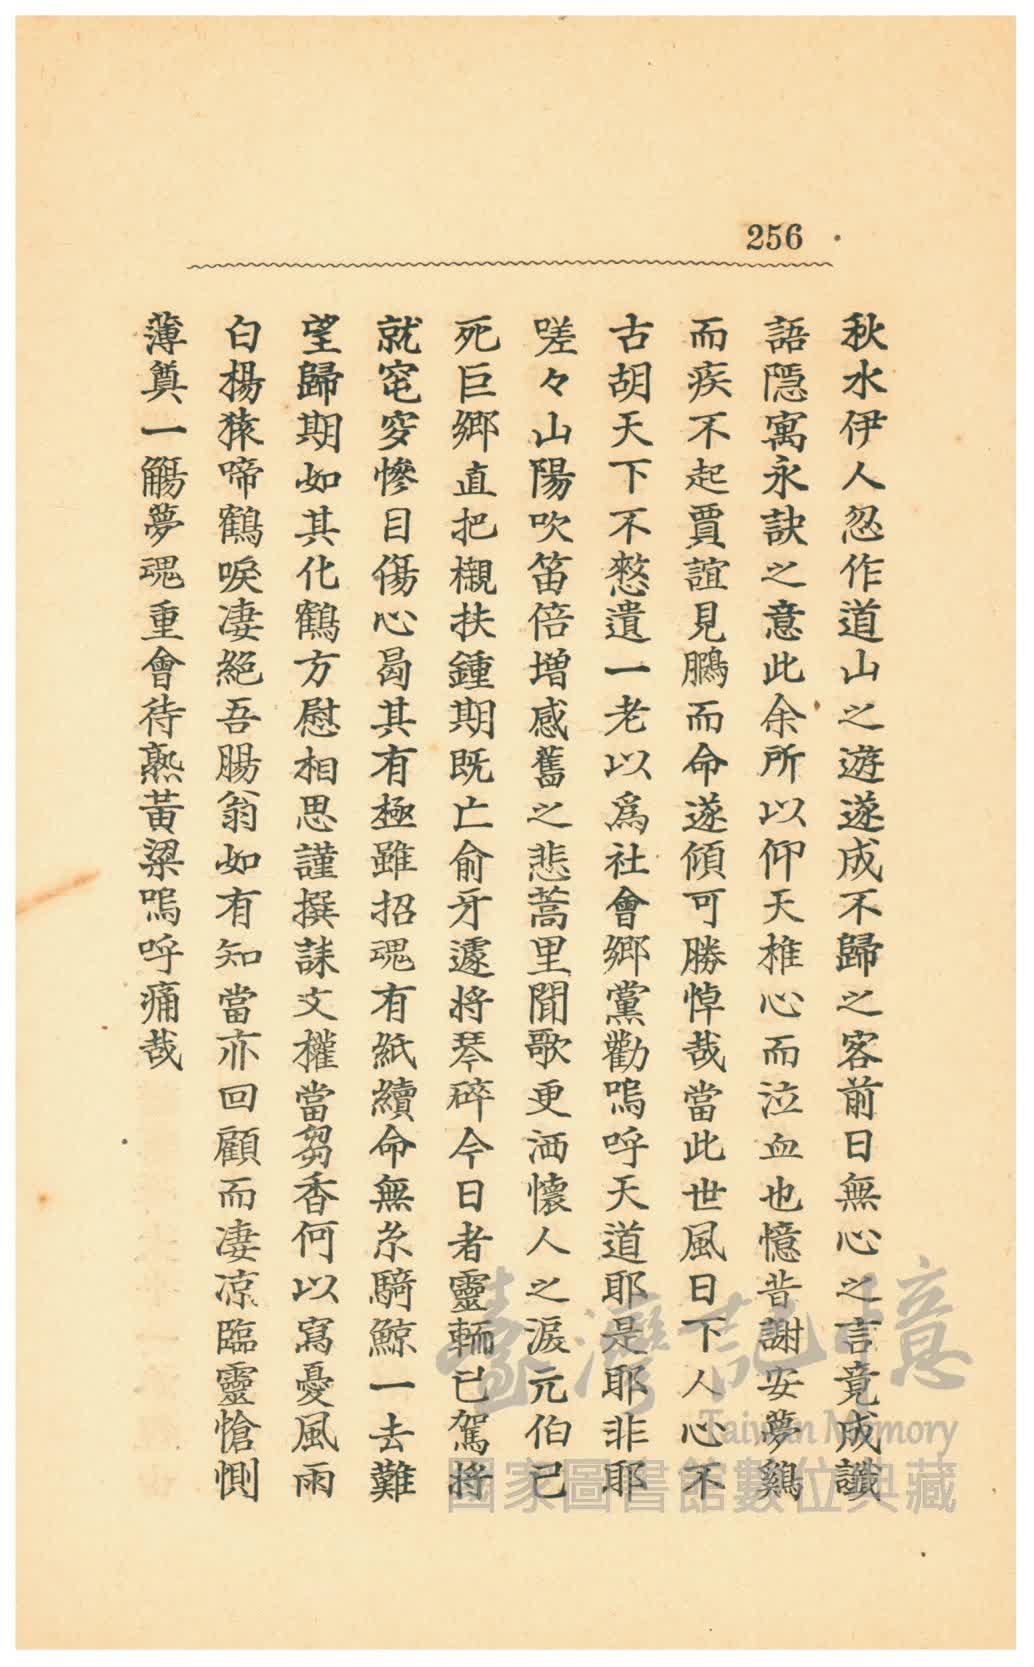 256
秋水伊人忽作道山之遊遂成不歸之客前日無心之言竟成讖
語隱寓永訣之意此余所以仰天椎心而泣血也憶昔謝安夢鷄
而疾不起賈誼見鵩而命遂傾可勝悼哉當此世風日下人心不
古胡天下不憗遺一老以爲社會鄉黨勸嗚呼天道耶是耶非耶
嗟々山陽吹笛倍增感舊之悲蒿里聞歌更洒懷人之淚元伯已
死巨鄉直把櫬扶鍾期既亡俞牙遽將琴碎今日者靈輀已駕將
就窀穸慘目傷心曷其有極雖招魂有紙續命無糸騎鯨一去難
望歸期如其化鶴方慰相思謹撰誄文權當芻香何以寫憂風雨
白楊猿啼鶴唳凄絕吾腸翁如有知當亦回顧而凄凉臨靈愴惻
薄奠一觴夢魂重會待熟黃粱嗚呼痛哉
臺灣記憶
Taiwan Memory
國家圖書館數位典藏